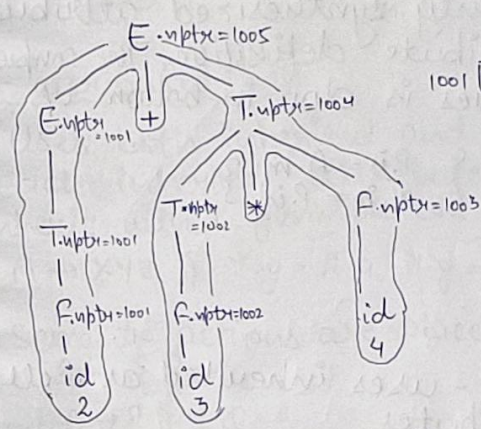 E.nptr=1005
1001
E.nptr =1001 + T.nptr=1004
T.nptr =1002 * F.nptr=1003
T.nptr=1001
F.nptr=1001 F.nptr=1002 id 4
id 2 id 3